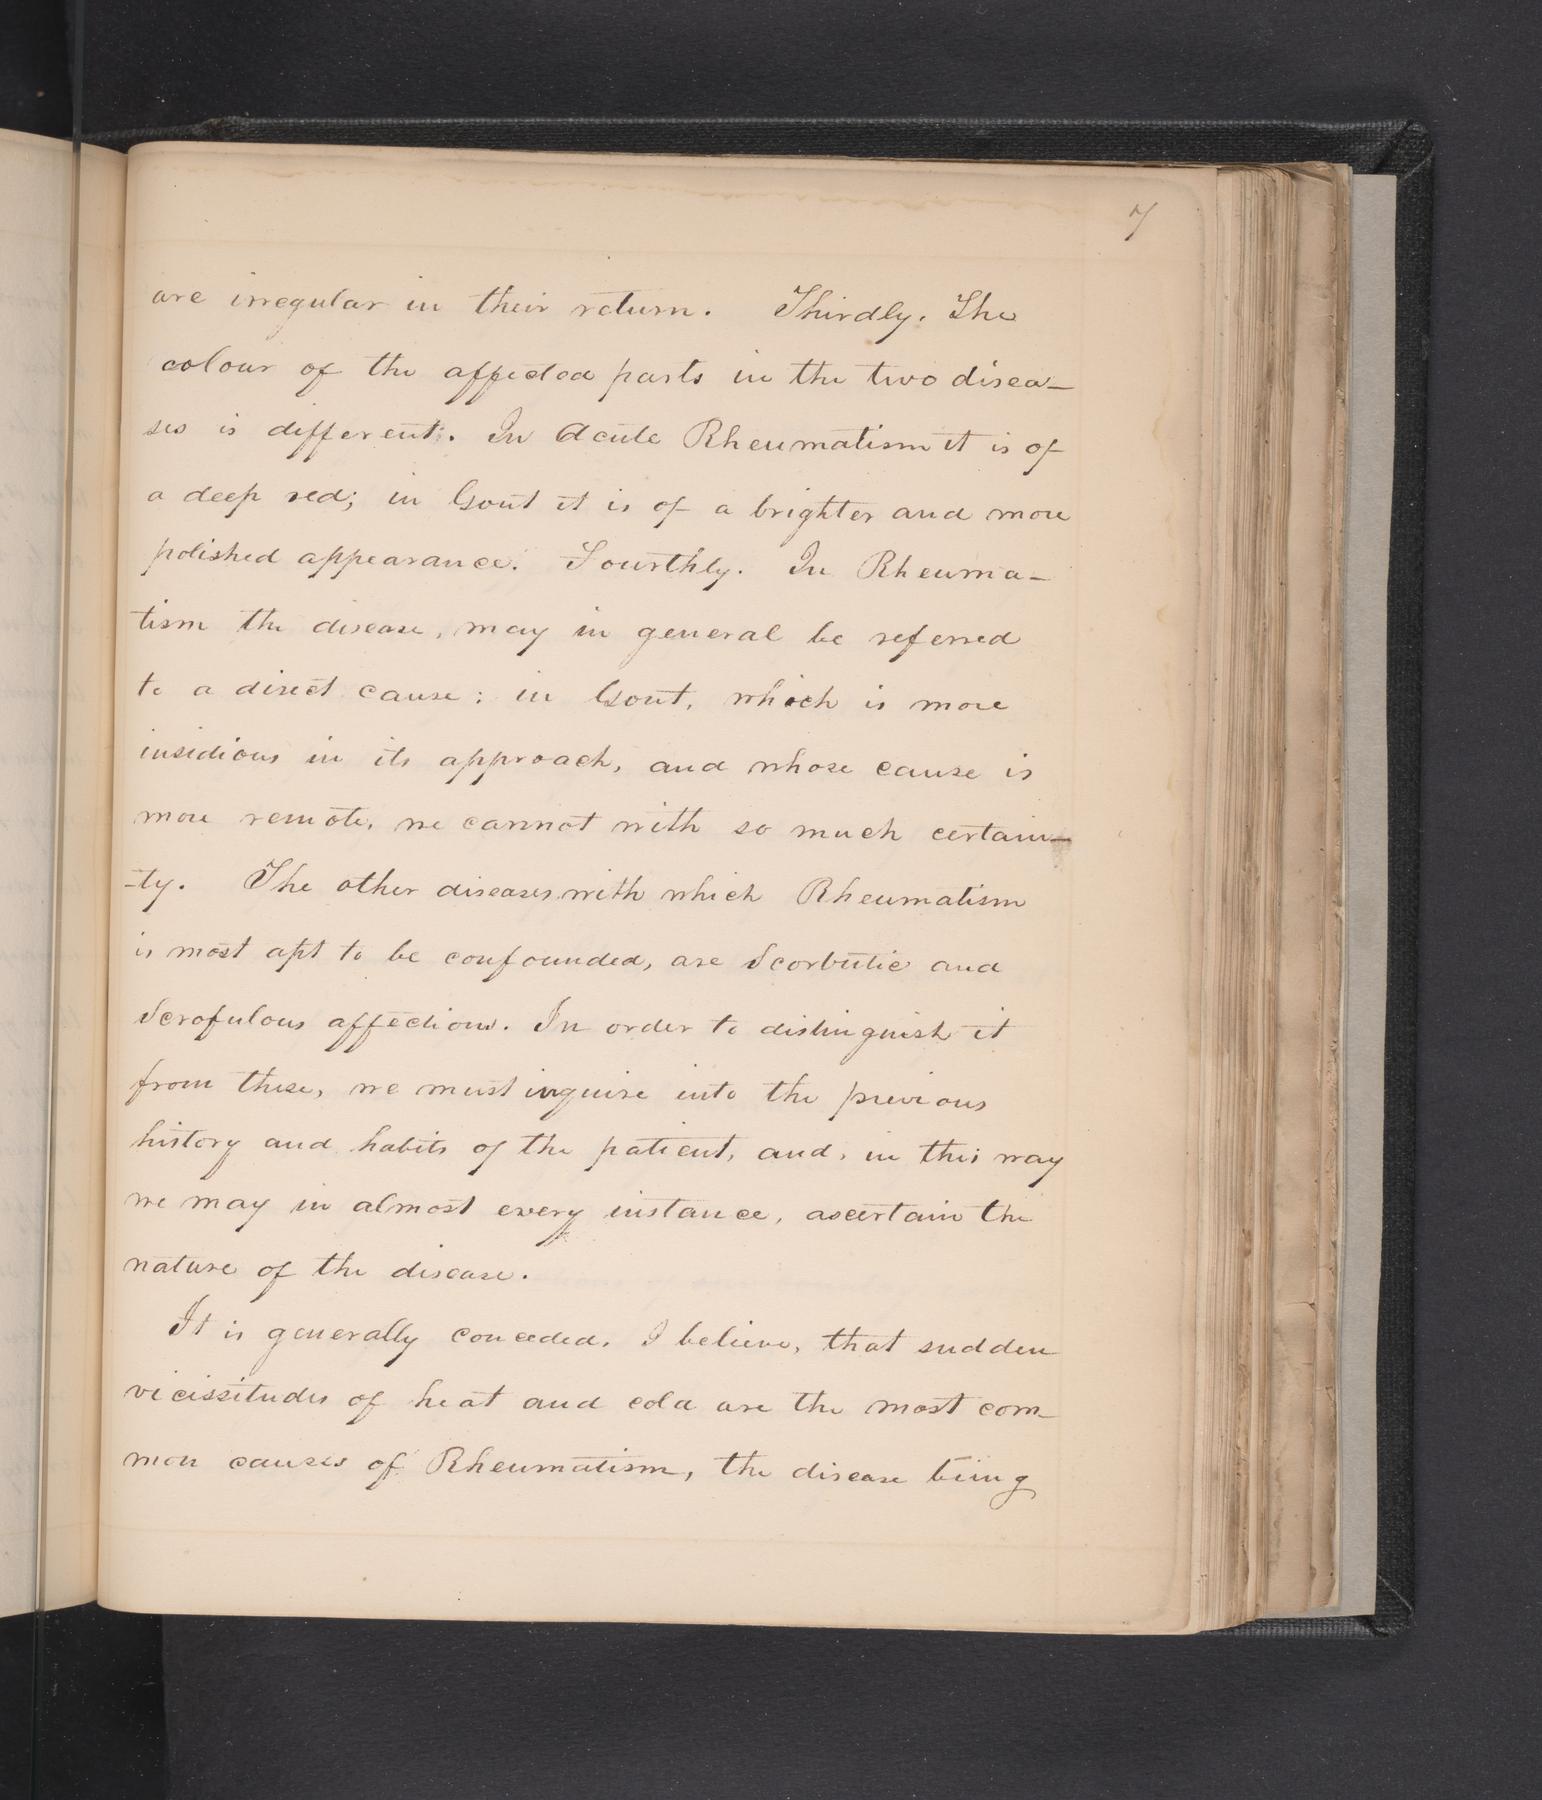 7
are irregular in their return. Thirdly. The
colour of the affected parts in the two disea-
ses is different. In Acute Rheumatism it is of
a deep red; in Gout it is of a brighter and more
polished appearance. Fourthly. In Rheuma-
tism the disease, may in general be referred
to a direct cause: in Gout, which is more
insidious in its approach, and whose cause is
more remote, we cannot with so much certain-
-ty. The other diseases with which Rheumatism
is most apt to be confounded, are Scorbutic and
Scrofulous affections. In order to distinguish it
from these, we must inquire into the previous
history and habits of the patient, and, in this way
we may in almost every instance, ascertain the
nature of the disease.
It is generally conceded, I believe, that sudden
vicissitudes of heat and cold are the most com-
mon causes of Rheumatism, the disease being